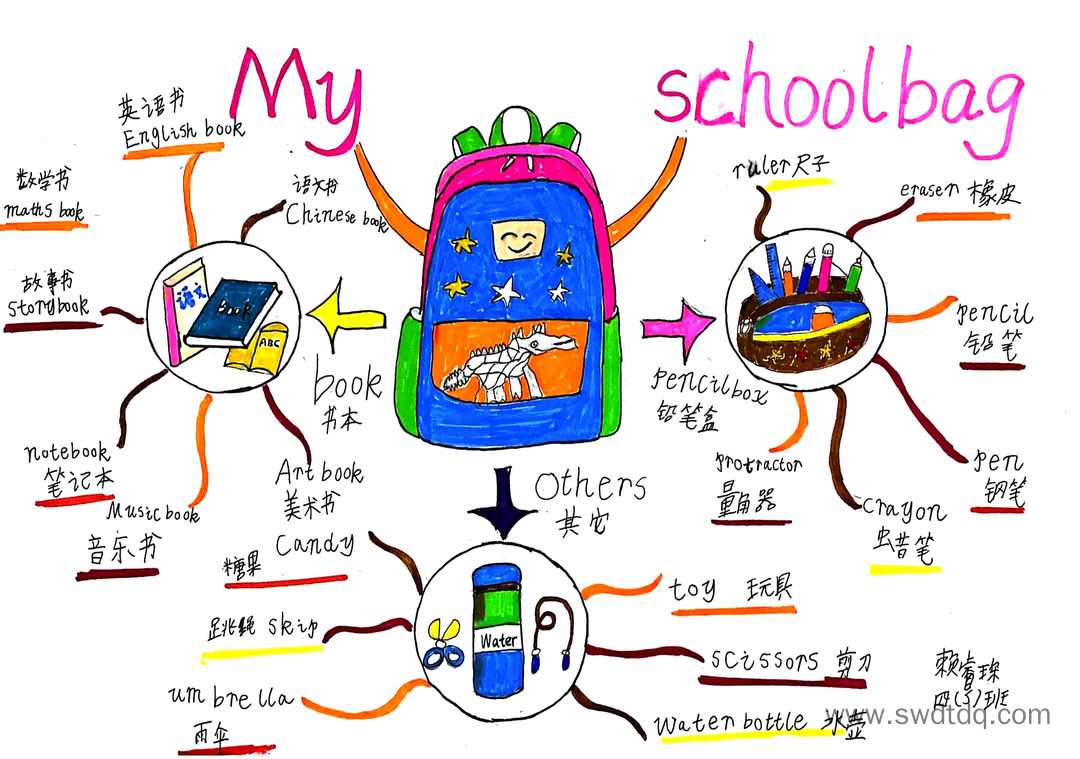 My schoolbag
英语书
English book
数学书
maths book
语文书
Chinese book
故事书
storybook
语文
Book
ABC
book
书本
notebook
笔记本
Music book
音乐书
Art book
美术书
ruler 尺子
eraser 橡皮
pencil
铅笔
pencilbox
铅笔盒
protractor
量角器
crayon
虫蜡笔
pen
钢笔
Others
其它
candy
糖果
跳绳 skip
umbrella
雨伞
Water
toy 玩具
scissors 剪刀
water bottle 水壶
四(5)班
www.swdtdq.com